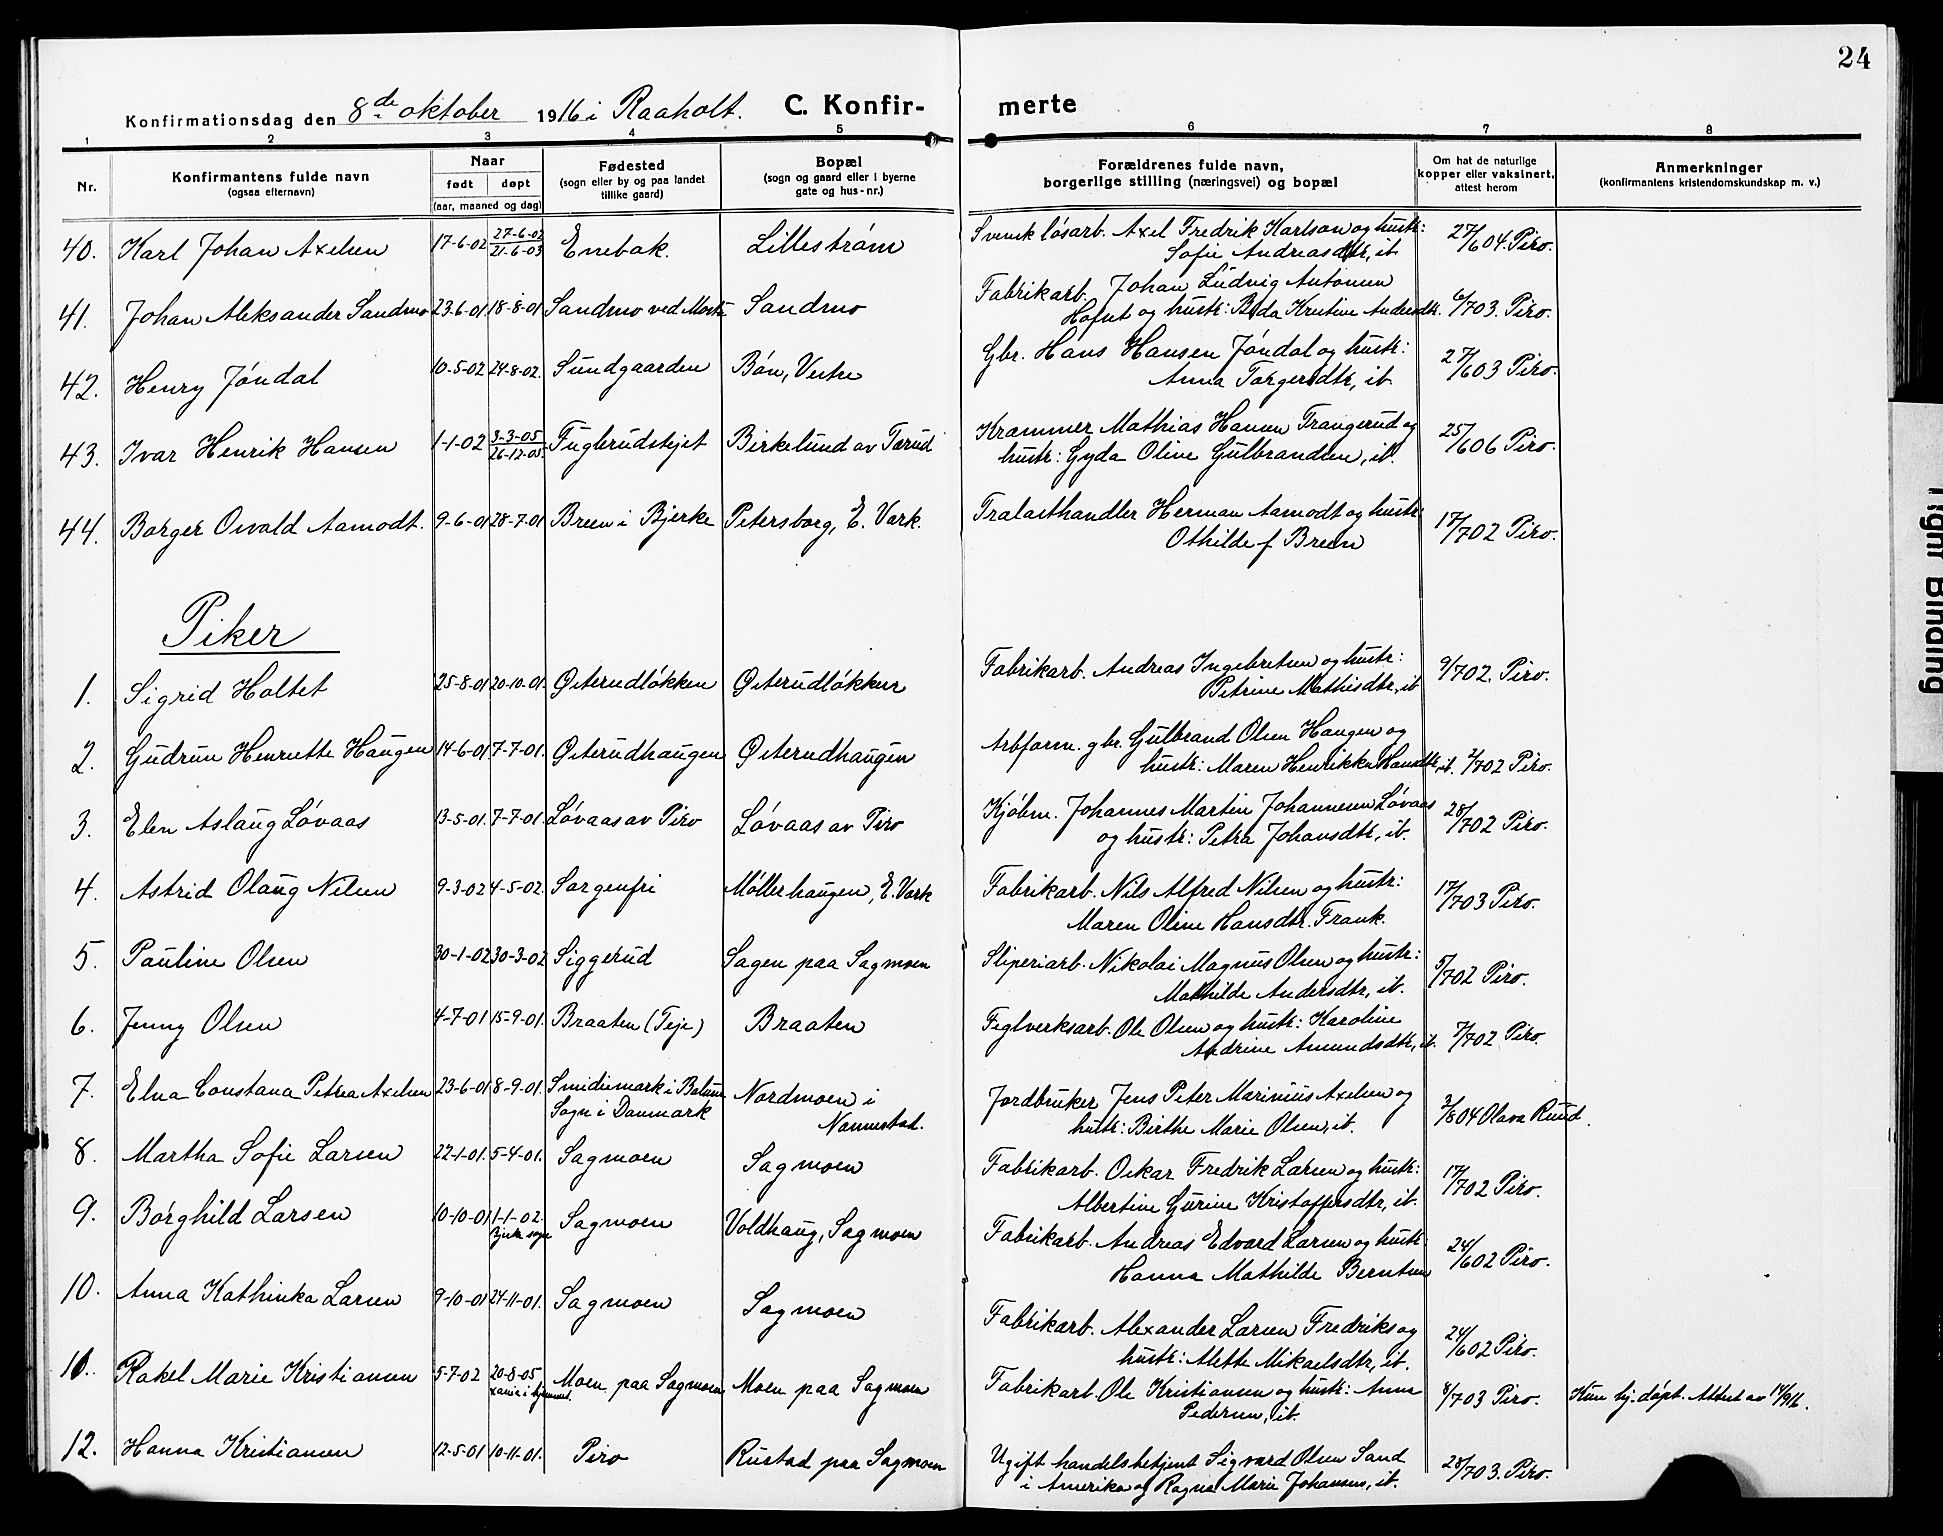 24
Konfirmationsdag den 8de oktober 1916 i Raaholt. C. Konfir- merte
1 2 3 4 5 6 7 8
Nr. Konfirmantens fulde navn (ogsaa efternavn) Naar født døpt (aar, maaned og dag) Fødested (sogn eller by og paa landet tillike gaard) Bopæl (sogn og gaard eller i byerne gate og hus-nr.) Forældrenes fulde navn, borgerlige stilling (næringsvei) og bopæl Om hat de naturlige kopper eller vaksinert, attest herom Anmerkninger (konfirmantens kristendomskundskap m. v.)
40. Karl Johan Axelsen 17-6-02 27-6-02 21-6-03 Enebak. Lillestrøm Svensk løsarb. Axel Fredrik Karlson og hustr: 27/604. Piro.
Sofie Andreasdtr, ib.
41. Johan Aleksander Sandmo 23-6-01 18-8-01 Sandmo ved Sandmo Fabrikarb. Johan Ludvig Antonsen
og hustr: Kristine Andersdtr. 6/703. Piro.
42. Henry Jøndal 10-5-02 24-8-02. Sundgaarden Bøn, Vestre Gbr. Hans Hansen Jøndal og hustr: 27/603 Piro.
Anna Torgersdtr, ib.
43. Ivar Henrik Hansen 1-1-02 3-3-05 26-12-05. Fuglerudstejet Birkelund av Tærud Krammer Mathias Hansen Trangerud og 25/606 Piro.
hustr: Gyda Oline Gulbrandsen, ib.
44. Borger Osvald Aamodt. 9-6-01 28-7-01 Breen i Bjerke Petersborg, E. Værk. Tralasthandler Herman Aamodt og hustr: 17/702 Piro.
Othilde f Breen
Piker
1. Sigrid Holtet 25-8-01 20-10-01. Østerudløkken Østerudløkken Fabrikarb. Andreas Ingebretsen og hustr: 9/702. Piro.
Petrine Mathisdtr, ib
2. Gudrun Henriette Haugen 14-6-01 7-7-01. Østerudhaugen Østerudhaugen Arbform. gbr. Gulbrand Olsen Haugen og
hustr: Maren Henrikke Hansdtr, ib. 2/702 Piro.
3. Elen Aslaug Løvaas 13-5-01. 7-7-01. Løvaas av Piro Løvaas av Piro Kjøbm. Johannes Martin Johannesen Løvaas 28/702 Piro.
og hustr: Petra Johansdtr, ib.
4. Astrid Olaug Nilsen 9-3-02 4-5-02. Sorgenfri Møllerhaugen, E. Værk Fabrikarb. Nils Alfred Nilsen og hustr: 17/703 Piro.
Maren Oline Hansdtr. Frank.
5. Pauline Olsen 30-1-02 30-3-02 Siggerud Sagen paa Sagmoen Sliperiarb. Nikolai Magnus Olsen og hustr: 5/702 Piro.
Mathilde Andersdtr, ib.
6. Jenny Olsen 4-7-01 15-9-01. Braaten (Teje) Braaten Teglverksarb. Ole Olsen og hustr: Karoline 7/702 Piro.
Andrine Amundsdtr, ib.
7. Elna Constana Petrea Axelsen 23-6-01 8-9-01. Smidiemark i Nordmoen i Jordbruker Jens Peter Marinius Axelsen og 3/804 Olava Ruud.
Sogn i Danmark Nannestad. hustr: Birthe Marie Olsen, ib.
8. Martha Sofie Larsen 22-1-01. 5-4-01. Sagmoen Sagmoen Fabrikarb. Oskar Fredrik Larsen og hustr: 17/702 Piro.
Albertine Gurine Kristoffersdtr, ib.
9. Borghild Larsen 10-10-01 1-1-02. Bjerke sogn Sagmoen Voldhaug, Sagmoen Fabrikarb. Andreas Edvard Larsen og hustr: 24/602 Piro.
Hanna Mathilde Berntsen
10. Anna Kathinka Larsen 9-10-01 24-11-01. Sagmoen Sagmoen Fabrikarb. Alexander Larsen Fredriks og 24/602 Piro.
hustr: Alette Mikaelsdtr, ib.
11. Rakel Marie Kristiansen 5-7-02 20-8-05 Moen paa Sagmoen Moen paa Sagmoen Fabrikarb. Ole Kristiansen og hustr: Anna 8/703 Piro. Kun hj. døpt. Attest av 14/916.
Pedersen, ib.
12. Hanna Kristiansen 12-5-01 10-11-01. Piro Rustad paa Sagmoen Ugift handelsbetjent Sigvard Olsen Sand 28/703. Piro.
i Amerika og Ragna Marie Johansens, ib.
Tight Binding